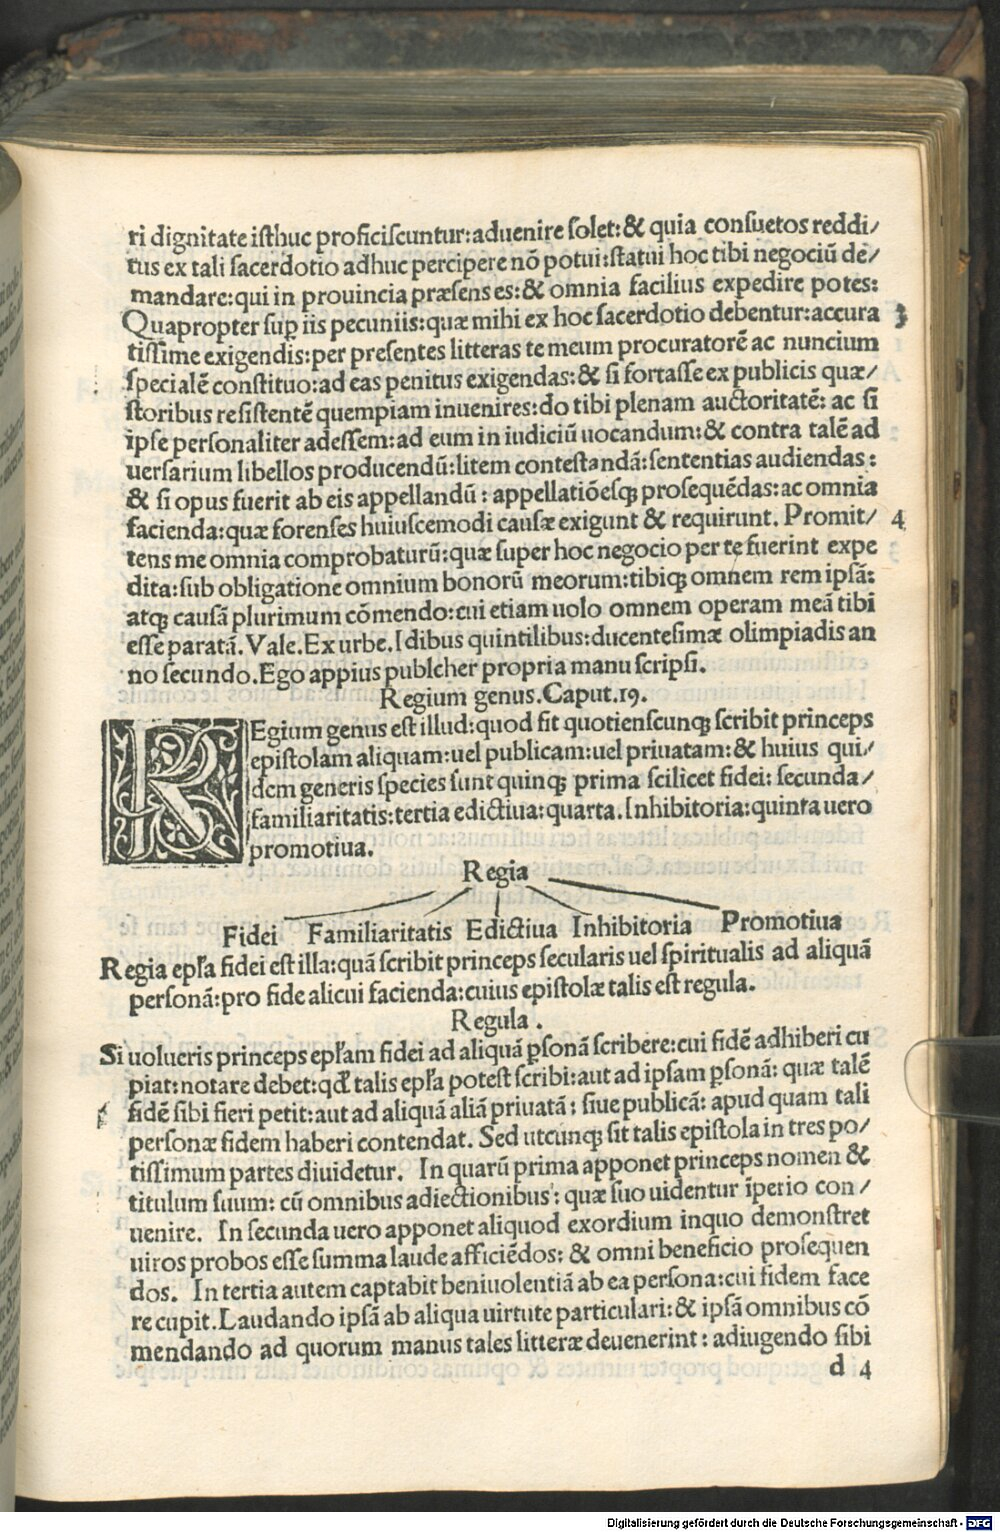 ri dignitate isthuc proficiscuntur: aduenire solet: & quia consuetos reddi/
tus ex tali sacerdotio adhuc percipere nõ potui: statui hoc tibi negociũ de/
mandare: qui in prouincia præsens es: & omnia facilius expedire potes:
Quapropter suꝑ iis pecuniis: quæ mihi ex hoc sacerdotio debentur: accura 3
tissime exigendis: per presentes litteras te meum procuratorẽ ac nuncium
specialẽ constituo: ad eas penitus exigendas: & si fortasse ex publicis quæ/
storibus resistentẽ quempiam inuenires: do tibi plenam auctoritatẽ: ac si
ipse personaliter adessem: ad eum in iudiciũ uocandum: & contra talẽ ad
uersarium libellos producendũ: litem contestandã: sententias audiendas:
& si opus fuerit ab eis appellandũ: appellatiõesꝗ prosequẽdas: ac omnia
facienda: quæ forenses huiuscemodi causæ exigunt & requirunt. Promit/ 4
tens me omnia comprobaturũ: quæ super hoc negocio per te fuerint expe
dita: sub obligatione omnium bonorũ meorum: tibiꝗ omnem rem ipsã:
atꝗ causã plurimum cõmendo: cui etiam uolo omnem operam meã tibi
esse paratã. Vale. Ex urbe. Idibus quintilibus: ducentesimæ olimpiadis an
no secundo. Ego appius publcher propria manu scripsi.
Regium genus. Caput. 19.
REgium genus est illud: quod fit quotienscunꝗ scribit princeps
epistolam aliquam: uel publicam: uel priuatam: & huius qui/
dem generis species sunt quinꝗ prima scilicet fidei: secunda/
familiaritatis: tertia edictiua: quarta. Inhibitoria: quinta uero
promotiua.
Regia
Fidei Familiaritatis Edictiua Inhibitoria Promotiua
Regia epła fidei est illa: quã scribit princeps secularis uel spiritualis ad aliquã
personã: pro fide alicui facienda: cuius epistolæ talis est regula.
Regula.
Si uolueris princeps epłam fidei ad aliquã ꝑsonã scribere: cui fidẽ adhiberi cu
piat: notare debet: qđ talis epła potest scribi: aut ad ipsam ꝑsonã: quæ talẽ
fidẽ sibi fieri petit: aut ad aliquã aliã priuatã: siue publicã: apud quam tali
personæ fidem haberi contendat. Sed utcunꝗ sit talis epistola in tres po/
tissimum partes diuidetur. In quarũ prima apponet princeps nomen &
titulum suum: cũ omnibus adiectionibus: quæ suo uidentur ĩperio con/
uenire. In secunda uero apponet aliquod exordium in quo demonstret
uiros probos esse summa laude afficiẽdos: & omni beneficio prosequen
dos. In tertia autem captabit beniuolentiã ab ea persona: cui fidem face
re cupit. Laudando ipsã ab aliqua uirtute particulari: & ipsã omnibus cõ
mendando ad quorum manus tales litteræ deuenerint: adiugendo sibi
d 4
Digitalisierung gefördert durch die Deutsche Forschungsgemeinschaft - DFG